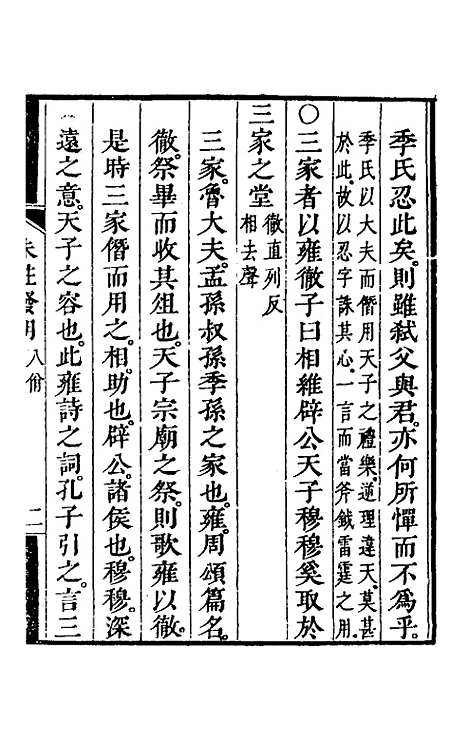 季氏忍此矣。則雖弑父與君。亦何所憚而不爲乎。
季氏以大夫而僭用天子之禮樂。逆理違天。莫甚
於此。故以忍字誅其心。一言而當斧鉞雷霆之用。
○三家者以雍徹子曰相維辟公天子穆穆奚取於
三家之堂 徹直列反
相去聲
三家。魯大夫。孟孫叔孫季孫之家也。雍。周頌篇名。
徹。祭畢而收其俎也。天子宗廟之祭。則歌雍以徹。
是時三家僭而用之。相。助也。辟公。諸侯也。穆穆。深
遠之意。天子之容也。此雍詩之詞。孔子引之。言三
朱註發明 八佾 二